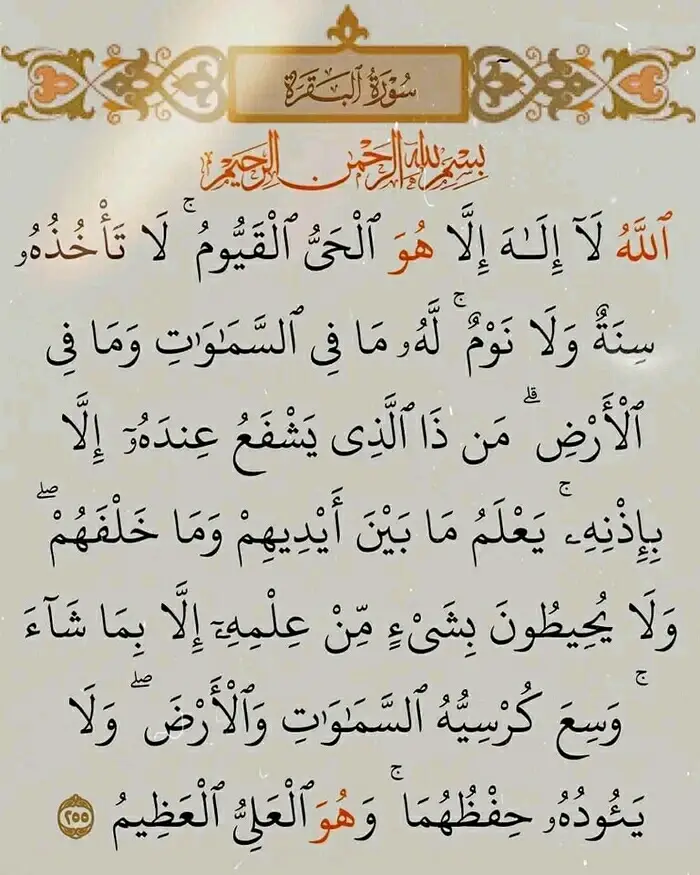 سُورَةُ ٱلْبَقَرَةِ
بِسْمِ ٱللَّهِ ٱلرَّحْمَٰنِ ٱلرَّحِيمِ
ٱللَّهُ لَآ إِلَـٰهَ إِلَّا هُوَ ٱلْحَىُّ ٱلْقَيُّومُ ۚ لَا تَأْخُذُهُۥ
سِنَةٌ وَلَا نَوْمٌ ۚ لَّهُۥ مَا فِى ٱلسَّمَـٰوَٰتِ وَمَا فِى
ٱلْأَرْضِ ۗ مَن ذَا ٱلَّذِى يَشْفَعُ عِندَهُۥٓ إِلَّا
بِإِذْنِهِۦ ۚ يَعْلَمُ مَا بَيْنَ أَيْدِيهِمْ وَمَا خَلْفَهُمْ ۖ
وَلَا يُحِيطُونَ بِشَىْءٍ مِّنْ عِلْمِهِۦٓ إِلَّا بِمَا شَآءَ
ۚ وَسِعَ كُرْسِيُّهُ ٱلسَّمَـٰوَٰتِ وَٱلْأَرْضَ ۖ وَلَا
يَـُٔودُهُۥ حِفْظُهُمَا ۚ وَهُوَ ٱلْعَلِىُّ ٱلْعَظِيمُ ٢٥٥